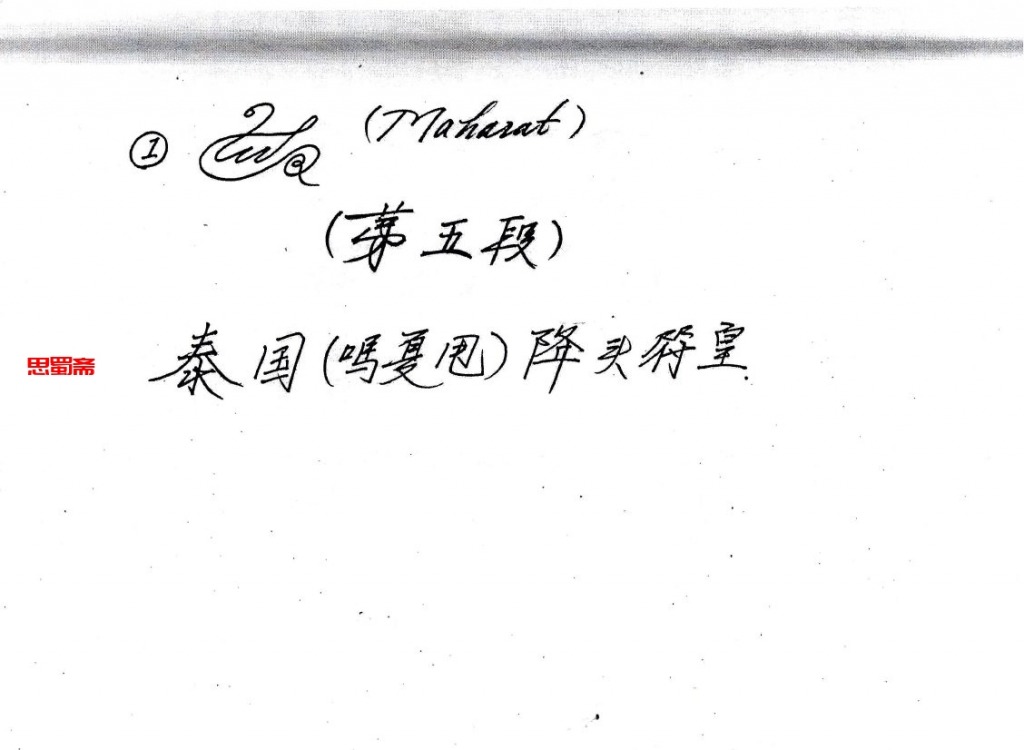 ① (Maharat)
(第五段)
泰国(嗎戛甩)降头符皇
思蜀斋